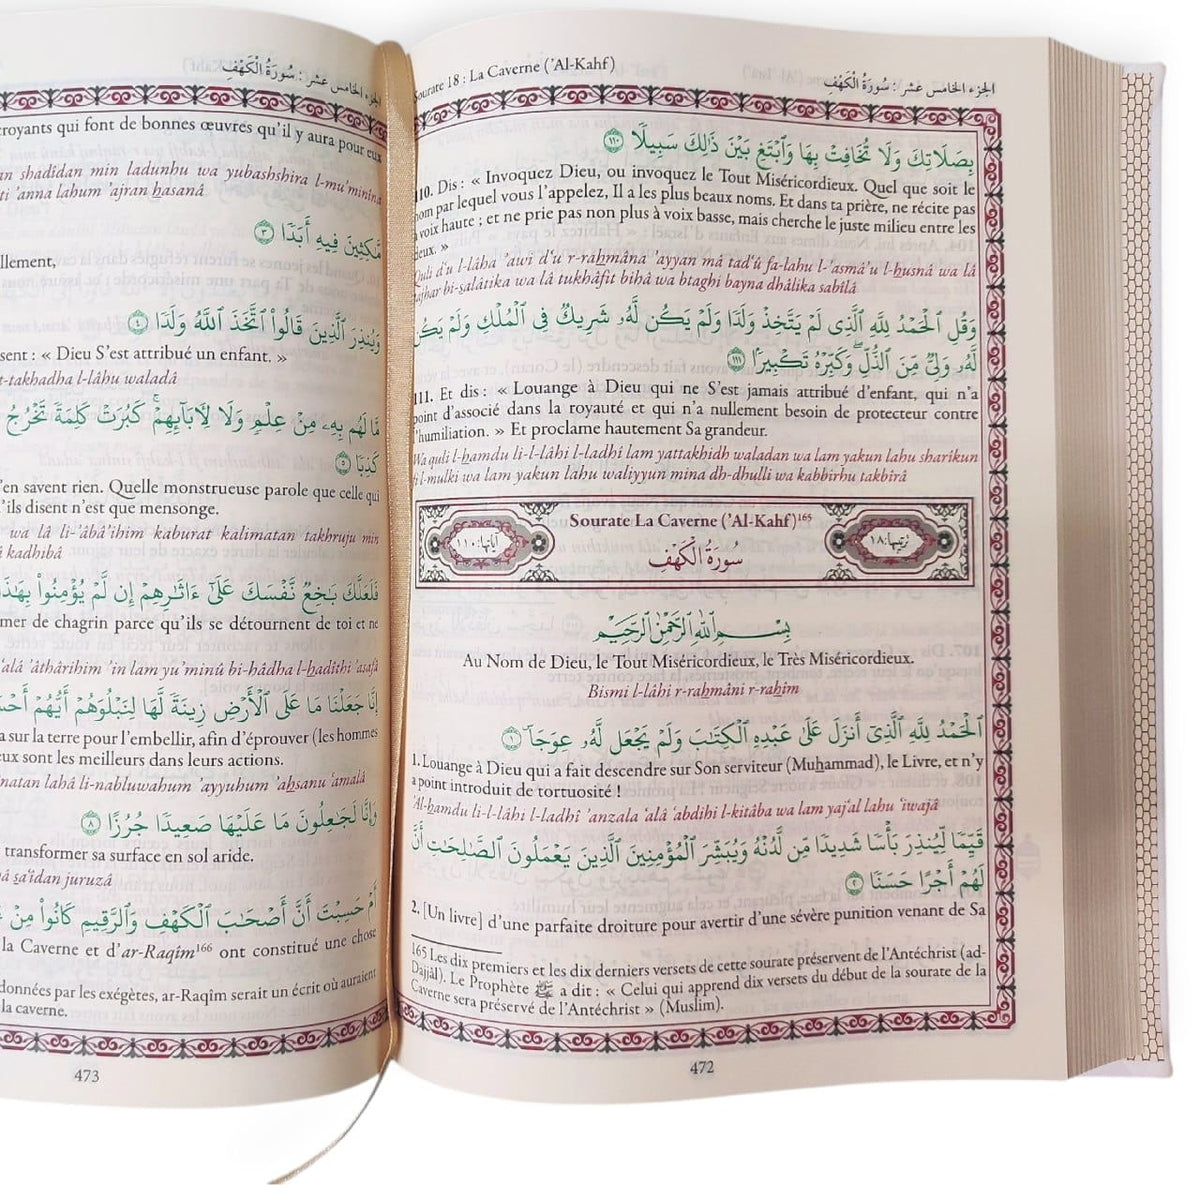 Sourate 18 : La Caverne (’Al-Kahf)
الجزء الخامس عشر : سُورَةُ الْكَهْفِ
بِصَلَاتِكَ وَلَا تُخَافِتْ بِهَا وَٱبْتَغِ بَيْنَ ذَٰلِكَ سَبِيلًا ١١٠
110. Dis : « Invoquez Dieu, ou invoquez le Tout Miséricordieux. Quel que soit le
nom par lequel vous l’appelez, Il a les plus beaux noms. Et dans ta prière, ne récite pas
à voix haute ; et ne prie pas non plus à voix basse, mais cherche le juste milieu entre les
deux. »
Quli d‘u l-lâha ’awi d‘u r-raẖmâna ’ayyan mâ tad‘û fa-lahu l-’asmâ’u l-ẖusnâ wa lâ
tajhar bi-ṣalâtika wa lâ tukhâfit bihâ wa btaghi bayna dhâlika sabîlâ
وَقُلِ ٱلْحَمْدُ لِلَّهِ ٱلَّذِى لَمْ يَتَّخِذْ وَلَدًا وَلَمْ يَكُن لَّهُۥ شَرِيكٌ فِى ٱلْمُلْكِ وَلَمْ يَكُن
لَّهُۥ وَلِىٌّ مِّنَ ٱلذُّلِّ ۖ وَكَبِّرْهُ تَكْبِيرًۢا ١١١
111. Et dis : « Louange à Dieu qui ne S’est jamais attribué d’enfant, qui n’a
point d’associé dans la royauté et qui n’a nullement besoin de protecteur contre
l’humiliation. » Et proclame hautement Sa grandeur.
Wa quli l-ẖamdu li-l-lâhi l-ladhî lam yattakhidh waladan wa lam yakun lahu sharîkun
fi l-mulki wa lam yakun lahu waliyyun mina dh-dhulli wa kabbirhu takbîrâ
Sourate La Caverne (’Al-Kahf)165
رتيبها: ١٨
سُورَةُ الْكَهْفِ
آياتها: ١١٠
بِسْمِ اللَّهِ الرَّحْمَٰنِ الرَّحِيمِ
Au Nom de Dieu, le Tout Miséricordieux, le Très Miséricordieux.
Bismi l-lâhi r-raẖmâni r-raẖîm
ٱلْحَمْدُ لِلَّهِ ٱلَّذِىٓ أَنزَلَ عَلَىٰ عَبْدِهِ ٱلْكِتَٰبَ وَلَمْ يَجْعَل لَّهُۥ عِوَجَاۜ ١
1. Louange à Dieu qui a fait descendre sur Son serviteur (Muẖammad), le Livre, et n’y
a point introduit de tortuosité !
’Al-ẖamdu li-l-lâhi l-ladhî ’anzala ‘alâ ‘abdihi l-kitâba wa lam yaj‘al lahu ‘iwajâ
قَيِّمًا لِّيُنذِرَ بَأْسًا شَدِيدًا مِّن لَّدُنْهُ وَيُبَشِّرَ ٱلْمُؤْمِنِينَ ٱلَّذِينَ يَعْمَلُونَ ٱلصَّٰلِحَٰتِ أَنَّ
لَهُمْ أَجْرًا حَسَنًا ٢
2. [Un livre] d’une parfaite droiture pour avertir d’une sévère punition venant de Sa
165 Les dix premiers et les dix derniers versets de cette sourate préservent de l’Antéchrist (ad-
Dajjâl). Le Prophète ﷺ a dit : « Celui qui apprend dix versets du début de la sourate de la
Caverne sera préservé de l’Antéchrist » (Muslim).
472
الجزء الخامس عشر : سُورَةُ الْكَهْفِ
croyants qui font de bonnes œuvres qu’il y aura pour eux
shadîdan min ladunhu wa yubashshira l-mu’minîna
’anna lahum ’ajran ẖasanâ
مَّٰكِثِينَ فِيهِ أَبَدًا ٣
وَيُنذِرَ ٱلَّذِينَ قَالُوا۟ ٱتَّخَذَ ٱللَّهُ وَلَدًا ٤
: « Dieu S’est attribué un enfant. »
t-takhadha l-lâhu waladâ
مَّا لَهُم بِهِۦ مِنْ عِلْمٍ وَلَا لِـَٔابَآئِهِمْ ۚ كَبُرَتْ كَلِمَةً تَخْرُجُ
كَذِبًا ٥
n’en savent rien. Quelle monstrueuse parole que celle qui
’ils disent n’est que mensonge.
wa lâ li-’âbâ’ihim kaburat kalimatan takhruju min
kadhibâ
فَلَعَلَّكَ بَٰخِعٌ نَّفْسَكَ عَلَىٰٓ ءَاثَٰرِهِمْ إِن لَّمْ يُؤْمِنُوا۟ بِهَٰذَا
mer de chagrin parce qu’ils se détournent de toi et ne
‘alâ ’âthârihim ’in lam yu’minû bi-hâdha l-ẖadîthi ’asafâ
إِنَّا جَعَلْنَا مَا عَلَى ٱلْأَرْضِ زِينَةً لَّهَا لِنَبْلُوَهُمْ أَيُّهُمْ
a sur la terre pour l’embellir, afin d’éprouver (les hommes
eux sont les meilleurs dans leurs actions.
lahâ li-nabluwahum ’ayyuhum ’aẖsanu ‘amalâ
وَإِنَّا لَجَٰعِلُونَ مَا عَلَيْهَا صَعِيدًا جُرُزًا ٨
transformer sa surface en sol aride.
ṣa‘îdan juruzâ
أَمْ حَسِبْتَ أَنَّ أَصْحَٰبَ ٱلْكَهْفِ وَٱلرَّقِيمِ كَانُوا۟ مِنْ
la Caverne et d’ar-Raqîm166 ont constitué une chose
données par les exégètes, ar-Raqîm serait un écrit où auraient
la caverne.
473